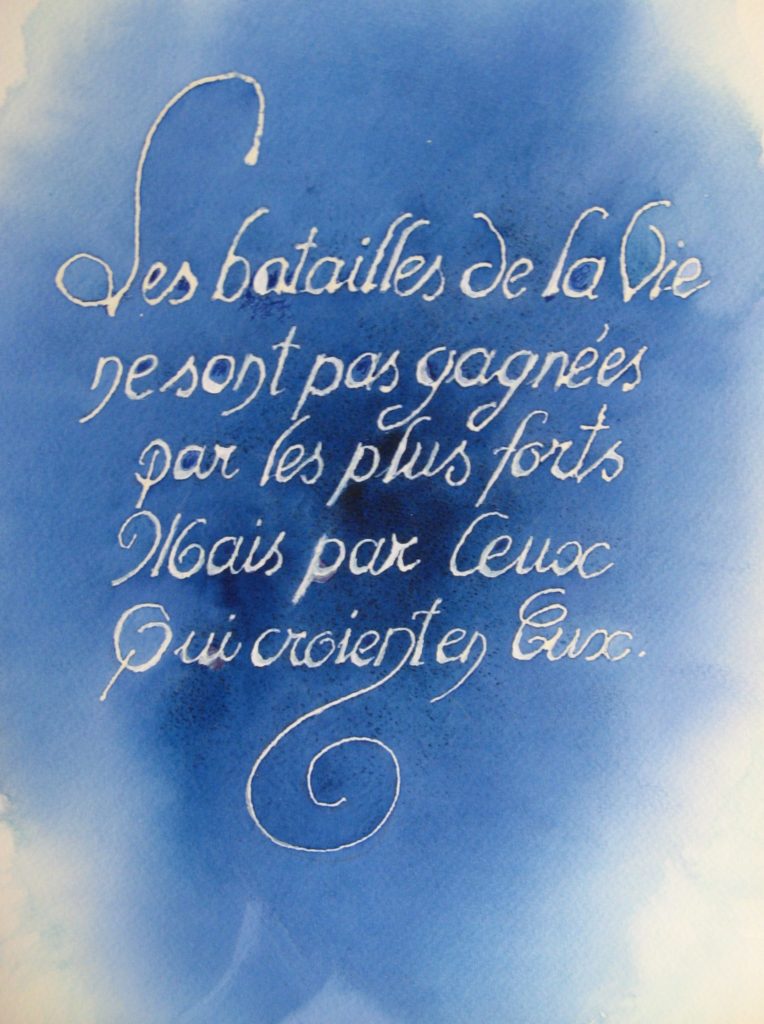 Les batailles de la Vie
ne sont pas gagnées
par les plus forts
Mais par Ceux
Qui croient en Eux.